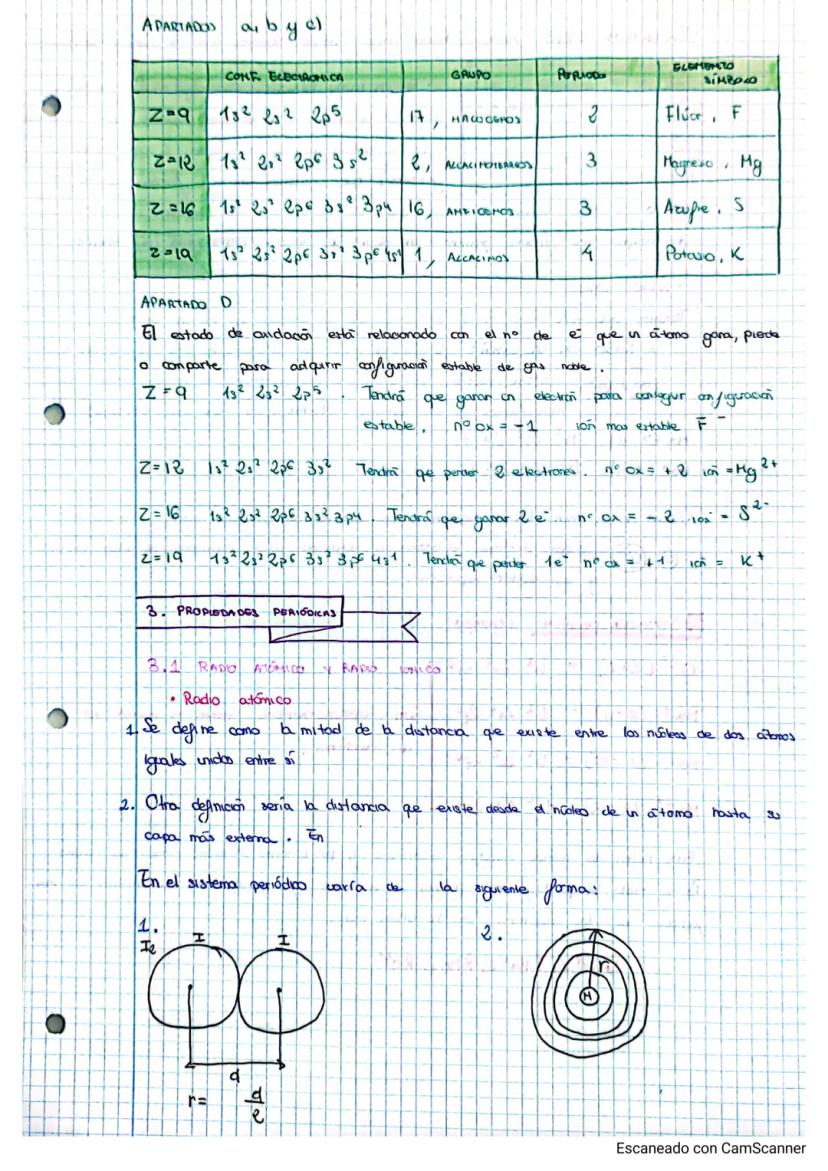 APARTADOS a, b y c)
CONF. ELECTRONICA GRUPO PERIODO ELEMENTO SÍMBOLO
Z=9 1s² 2s² 2p⁵ 17, HALOGENOS 2 Flúor, F
Z=12 1s² 2s² 2p⁶ 3s² 2, ALCALINOTERREOS 3 Magnesio, Mg
Z=16 1s² 2s² 2p⁶ 3s² 3p4 16, ANFIGENOS 3 Azufre, S
Z=19 1s² 2s² 2p⁶ 3s² 3p⁶ 4s¹ 1, ALCALINOS 4 Potasio, K
APARTADO D
El estado de oxidación está relacionado con el nº de e⁻ que un átomo gana, pierde
o comparte para adquirir configuración estable de gas noble.
Z=9 1s² 2s² 2p⁵. Tendrá que ganar un electrón para conseguir configuración
estable. nº ox = -1 ión mas estable F⁻
Z=12 1s² 2s² 2p⁶ 3s² Tendrá que perder 2 electrones. nº ox = +2 ión = Mg²⁺
Z=16 1s² 2s² 2p⁶ 3s² 3p4. Tendrá que ganar 2 e⁻ nº ox = -2 ión = S²⁻
Z=19 1s² 2s² 2p⁶ 3s² 3p⁶ 4s¹. Tendrá que perder 1e⁻ nº ox = +1 ión = K⁺
3. PROPIEDADES PERIÓDICAS
3.1 RADIO ATÓMICO Y RADIO IONICO
• Radio atómico
1. Se define como la mitad de la distancia que existe entre los núcleos de dos átomos
iguales unidos entre sí
2. Otra definición sería la distancia que existe desde el núcleo de un átomo hasta su
capa más externa. En
En el sistema periódico varía de la siguiente forma:
1. 2.
I2 I I
r
N
d
r= d/2
Escaneado con CamScanner